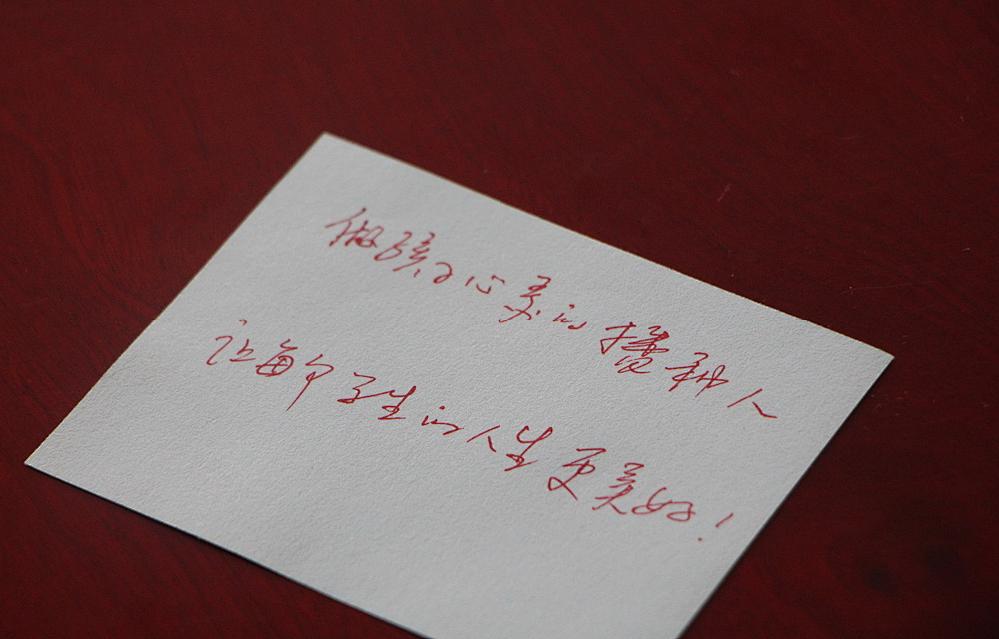 做孩子心灵的播种人
让每个学生的人生更美好!